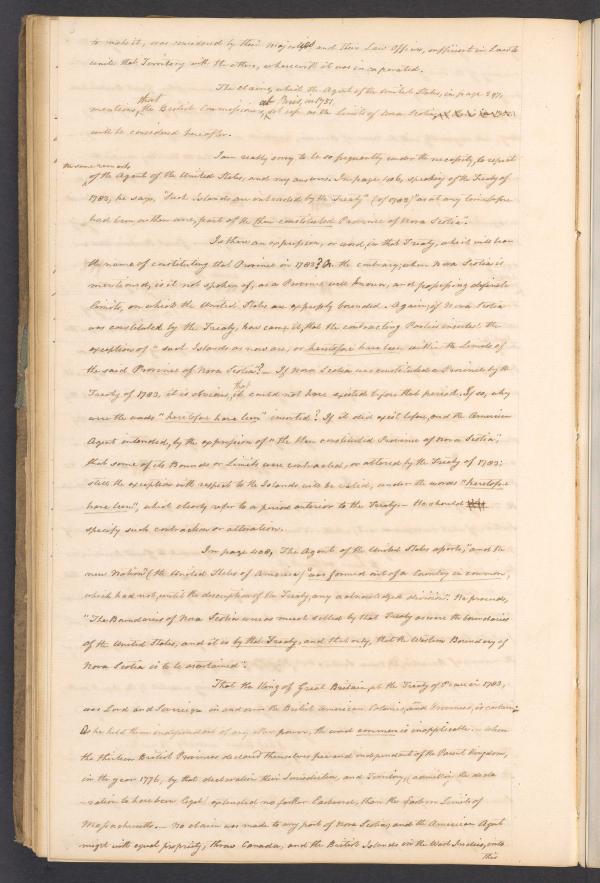 to make it, was considered by their Majesties and their Law Officers, sufficient in Law to
unite that Territory with the others, wherewith it was incorporated.
The claim, which the Agent of the United States, in page 397,
mentions, that the British Commissioners, at Paris, in 1751, set up as the Limits of Nova Scotia,
will be considered hereafter.
I am really sorry to be so frequently under the necessity, to repeat
the same remarks
of the Agent of the United States, and my answers. In page 406, speaking of the Treaty of
1783, he says, "Such Islands are excluded by the Treaty" (of 1783) "as at any time before
had been, or then were, part of the then constituted Province of Nova Scotia".
Is there an expression, or word, in that Treaty, which will bear
the name of constituting that Province in 1783? On the contrary, when Nova Scotia is
mentioned, is it not spoken of, as a Province well known, and possessing definite
Limits, on which the United States are expressly bounded. Again; if Nova Scotia
was constituted by the Treaty, how came it, that the contracting Parties insert the
exception of "such Islands as now are, or heretofore have been within the Limits of
the said Province of Nova Scotia"? If Nova Scotia was constituted a Province by the
Treaty of 1783, it is obvious, that it could not have existed before that period. If so, why
were the words "heretofore have been" inserted? If it did exist before, and the American
Agent intended, by the expression of "the then constituted Province of Nova Scotia",
that some of its Bounds or Limits were contracted, or altered by the Treaty of 1783;
still the exception with respect to the Islands will be valid, under the words "heretofore
have been", which clearly refer to a period anterior to the Treaty. He should
specify such contraction or alteration.
In page 408, The Agent of the United States asserts, "and the
new Nation" (the United States of America) "was formed out of a Country in common,
which had not, until the description of the Treaty, any acknowledged division". He proceeds,
"The Boundaries of Nova Scotia were as much settled by that Treaty as were the boundaries
of the United States, and it is by that Treaty, and that only, that the Western Boundary of
Nova Scotia is to be ascertained".
That the King of Great Britain, at the Treaty of Peace in 1783,
was Lord and Sovereign in and over the British American Colonies, and Provinces, is certain;
As he held them independent of any other power, the word common is inapplicable. When
the thirteen British Provinces declared themselves free and independent of the Parent Kingdom,
in the year 1776, by that declaration their Jurisdiction, and Territory, (admitting the decla
-ration to have been legal) extended no farther Eastward, than the Eastern Limits of
Massachusetts. No claim was made to any part of Nova Scotia, and the American Agent
might with equal propriety, throw Canada, and the British Islands in the West Indies, into
this